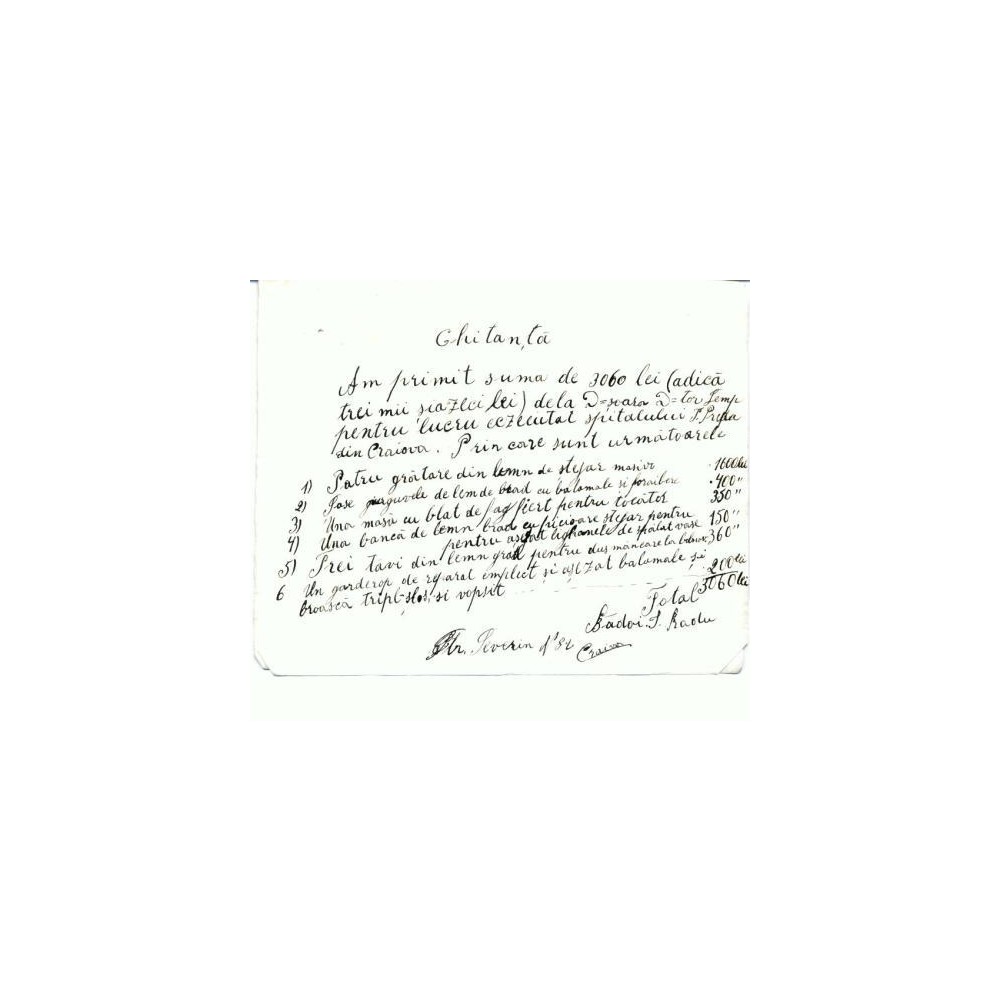 Chitanță
Am primit suma de 3060 lei (adică
trei mii șiazeci lei) dela D=șoara D=tor
pentru lucru eczecutat spitalului
din Craiova. Prin care sunt următoarele
1) Patru grătare din lemn de stejar masiv 1600 lei
2) Șase de lem de brad cu balamale si 400 "
3) Una masă cu blat de fag fiert pentru tocător 350 "
4) Una bancă de lemn brad cu picioare stejar pentru 150 "
pentru lighanele de spălat vase
5) Trei tăvi din lemn pentru dus mâncare la 360 "
6 Un garderop de reparat și balamale și
broască și vopsit 200 lei
Total 3060 lei
Radu
Str. Severin № 82 Craiova